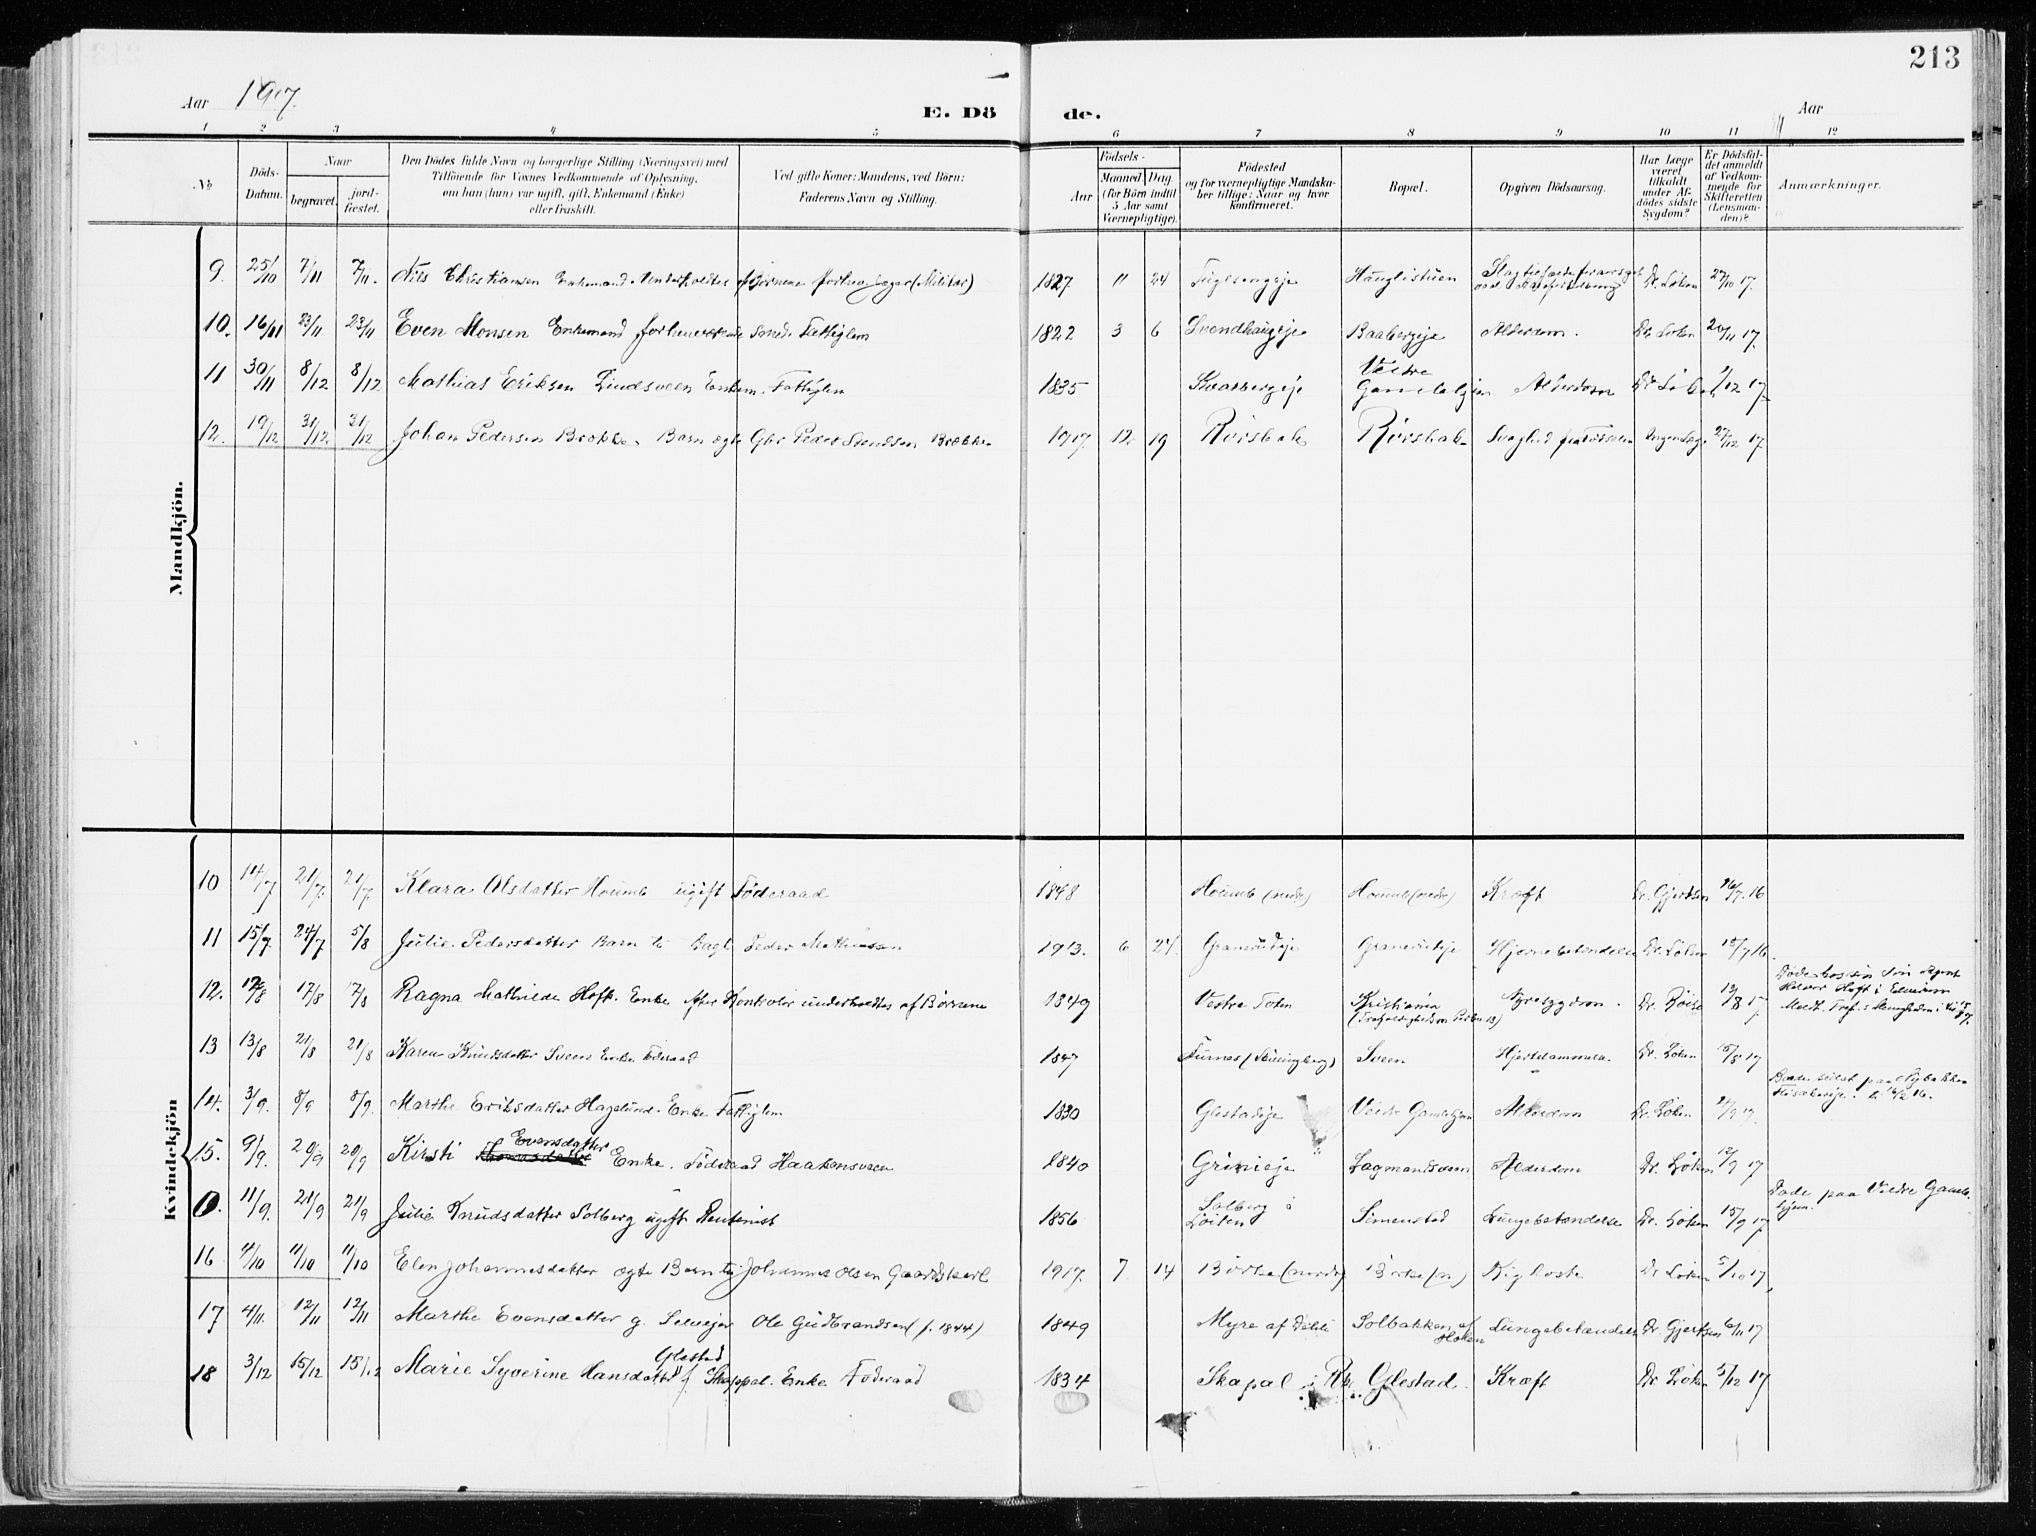 213
Aar 1917.
E. Dö de.
Aar
1 2 3 4 5 6 7 8 9 10 11 12
No
Döds-Datum.
Naar
begravet.
jord-fæstet.
Den Dödes fulde Navn og borgerlige Stilling (Næringsvei) med
Tilföiende for Voxnes Vedkommende af Oplysning,
om han (hun) var ugift, gift, Enkemand (Enke)
eller fraskilt.
Ved gifte Koner: Mandens, ved Börn:
Faderens Navn og Stilling.
Födsels-
Aar
Maaned Dag.
(for Börn indtil
5 Aar samt
Værnepligtige).
Födested
og for værnepligtige Mandska-
ber tillige: Naar og hvor
konfirmeret.
Bopæl.
Opgiven Dödsaarsag.
Har Læge
været
tilkaldt
under Af-
dödes sidste
Sygdom?
Er Dödsfal-
det anmeldt
af Vedkom-
mende for
Skifteretten
(Lensman-
den)?
Anmærkninger.
Mandkjön.
9. 25/10 7/11 7/11. Nils Christiansen Enkemand. Underholdtes af Børnene forhev. Jæger (Militær) 1827 11 24 Fuglsengeje Hauglistuen Dr. Løken 27/10 17.
10. 16/11 23/11 23/11 Even Monsen Enkemand forhenværende Smed. Fattiglem 1822 3 6 Svendhaugeje Baabergeje Alderdom. Dr. Løken 20/11 17.
11 30/11 8/12 8/12 Mathias Eriksen Lindsveen Enkem. Fattiglem 1835 Kvarbergeje Veldre Gamlehjem Alderdom Dr. Løken 1/12 17.
12. 19/12 31/12 31/12 Johan Pedersen Brække. Barn ægte Gbr Peder Svendsen Brække 1917. 12 19 Rørsbak Rørsbak Svaghed fra Fødselen Ingen Læge 27/12 17.
Kvindekjön
10 14/7 21/7. 21/7. Klara Olsdatter Houmb ugift Føderaad 1848 Houmb (nedre) Houmb (nedre) Kræft Dr. Gjertsen 16/7.16
11 15/7. 24/7 5/8 Julie Pedersdatter Barn til Peder Mathiassen 1913. 6 24 Granerudeje Granerudeje Hjernebetændelse Dr. Løken 18/7 16.
12. 12/8 17/8 17/8 Ragna Mathilde Hoft. Enke efter Kontrolør underholdtes af Børnene 1849 Vestre Toten Kristiania Nyresygdom. Dr. 13/8 17.
13 13/8 21/8 21/8 Karen Knudsdatter Sveen Enke Føderaad 1847 Furnes Sveen Hjertelammelse. Dr. Løken 15/8 17
14. 3/9. 8/9 8/9. Marthe Eriksdatter Hagelund. Enke Fattiglem 1830 Glestadeje Veldre Gamlehjem Alderdom Dr. Løken
15. 9/9. 20/9 20/9 Kirsti Evensdatter Enke. Føderaad Haakensveen 1840 Grimeje Lagmandsveen Alderdom Dr. Løken 12/9 17
11/9. 21/9 21/9 Julie Knudsdatter Solberg ugift Rentenist 1856 Solberg i Løiten Simenstad Lungebetændelse Dr. Løken 15/9 17. Døde paa Veldre Gamle-hjem.
16 4/10 11/10 11/10 Elen Johannesdatter ægte Barn til Johannes Olsen Gaardskarl 1917. 7 14 Børke (nordre) Børke (n) Kighoste Dr Løken 5/10 17,
17 4/11. 12/11 12/11 Marthe Evensdatter g. Selvejer Ole Gudbrandsen (f. 1844) 1849 Myre af Dæhli Solbakken af Holen Lungebetændelse Dr Gjertsen 6/11 17
18 3/12 15/12 15/12 Marie Syverine Hansdatter Glestad f. Skappal. Enke Føderaad 1834 Skapal i Rbr Glestad. Kræft Dr Løken 5/12 17